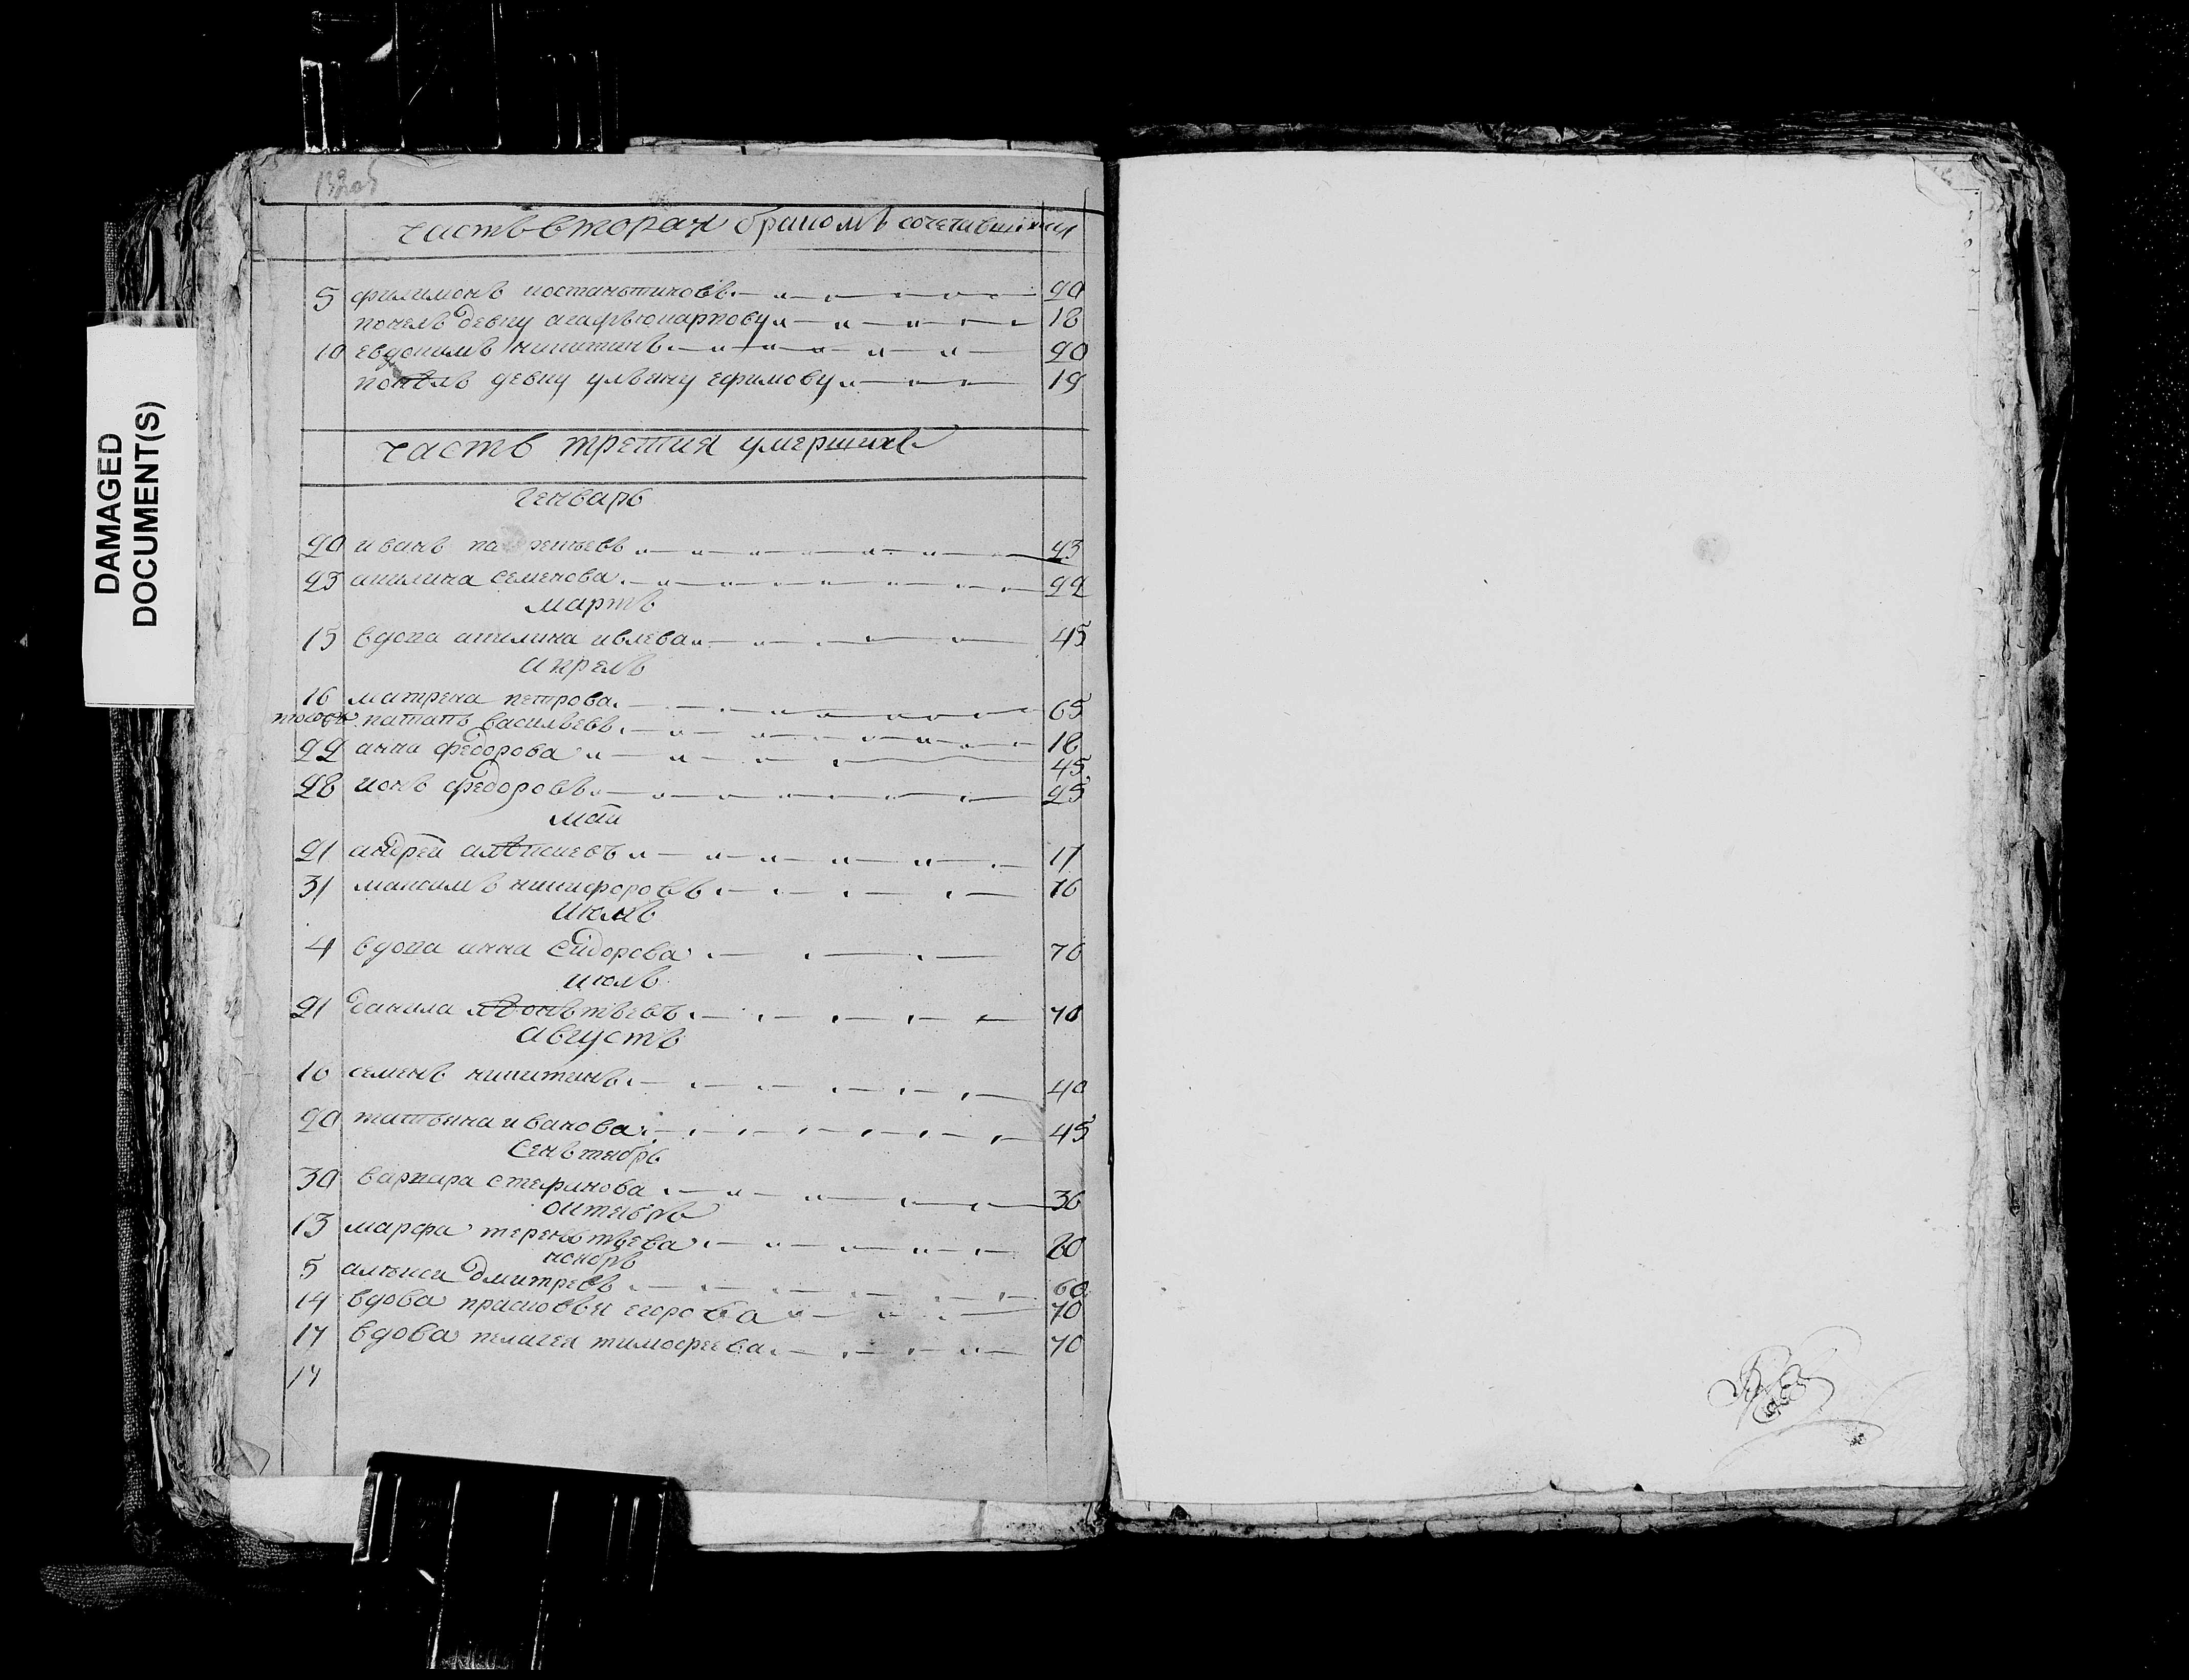 132об
часть вторая бракомъ сочетавшихся
5 филимонъ костаньтиновъ 20
понелъ девку агафью карпову 18
10 евдокимъ никитинъ 20
понелъ девку ульяну ефимову 19
часть третия умершихъ
генварь
20 иванъ 43
25 акилина семенова 22
мартъ
15 вдова акилина ивлева 45
апрель
16 матрена петрова 65
патапъ васильевъ 18
22 анна федорова 45
28 ионъ федоровъ 25
маи
21 андреи алѣксиевъ 17
31 максимъ никифоровъ 76
июнь
4 вдова анна сидорова 70
июль
21 данила лѣоньтьевъ 70
августъ
10 семенъ никитинъ 40
20 татьяна иванова 45
сеньтябрь
30 варвара стефанова 36
октябрь
13 марфа тереньтьева 20
ноябрь
5 алѣкси дмитревъ 60
14 вдова прасковья егорова 70
17 вдова пелагея тимофеева 70
17
DAMAGED
DOCUMENT(S)